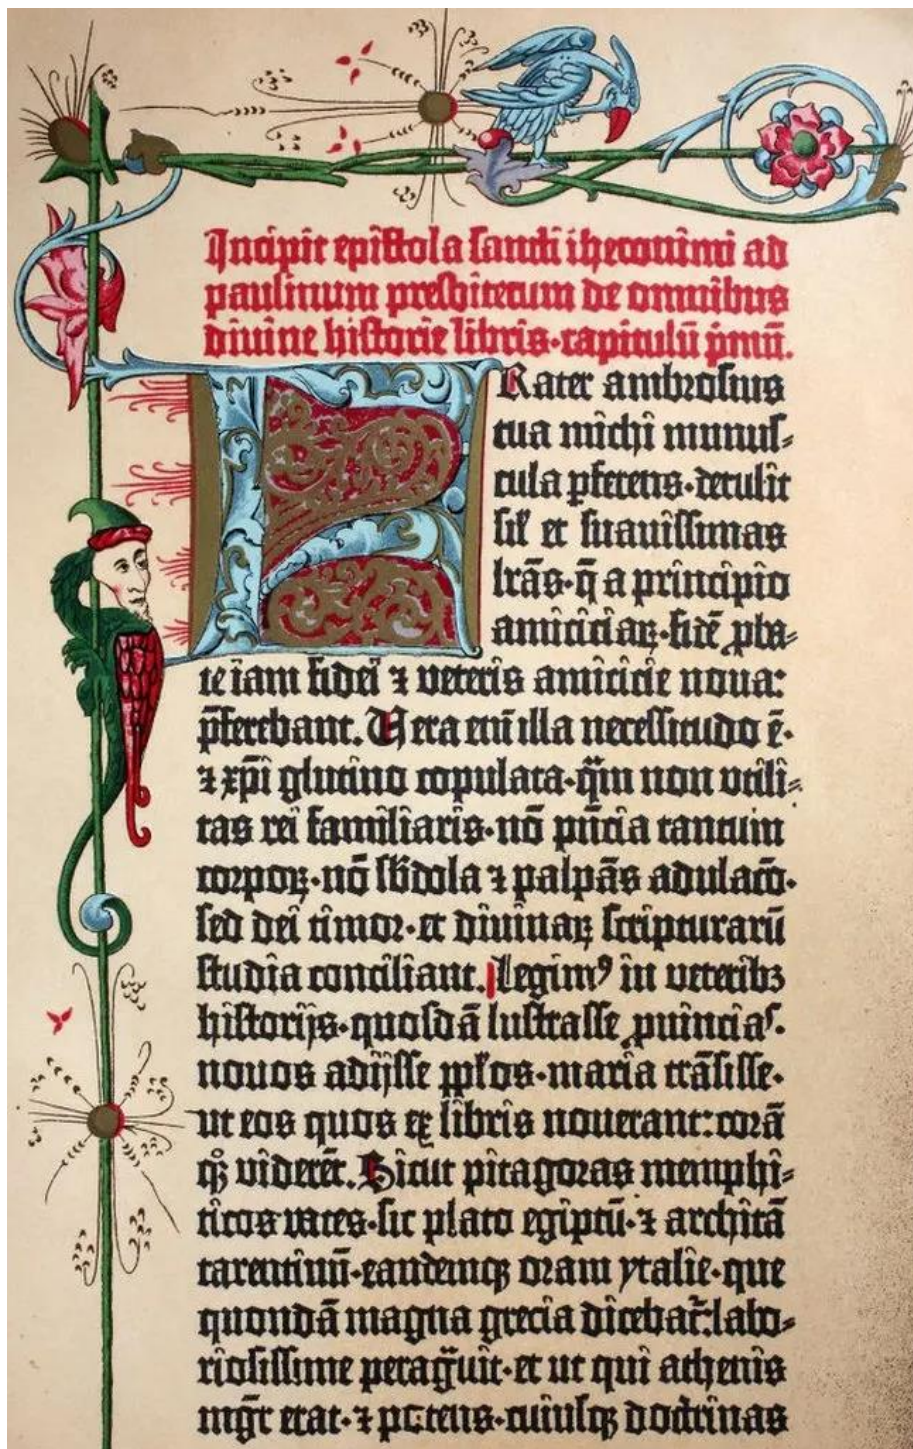 Incipit epistola sancti iheronimi ad
paulinum presbiterum de omnibus
divine historie libris·capitulū p̄mū.
FRater ambrosius
tua michi munus⸗
cula pferens·detulit
sil' et suavissimas
lrās·q̄ a principio
amiciciaꝝ·fidē ꝓba⸗
te iam fidei ⁊ veteris amicicie nova:
p̄ferebant. Vera eni illa necessitudo ē·
⁊ xp̄i glutino copulata·q̄m non utili⸗
tas rei familiaris·nō pn̄cia tantum
corpoꝝ·nō sb̄dola ⁊ palpās adulaco·
sed dei timor·et divinaꝝ scripturarū
studia conciliant. Legimꝰ in veteribꝫ
historijs·quosdā lustrasse ꝓuincias·
novos adijsse pplos·maria trāsisse·
ut eos quos ex libris noverant: corā
qꝫ viderēt. Sicut pitagoras memphi⸗
ticos vates·sic plato egiptū·⁊ architā
tarentinū·eandemqꝫ oram ytalie·que
quondā magna grecia dicebat̄: labo⸗
riosissime peragūit·et ut qui athenis
mgr̄ erat·⁊ potens·cuiusqꝫ doctrinas